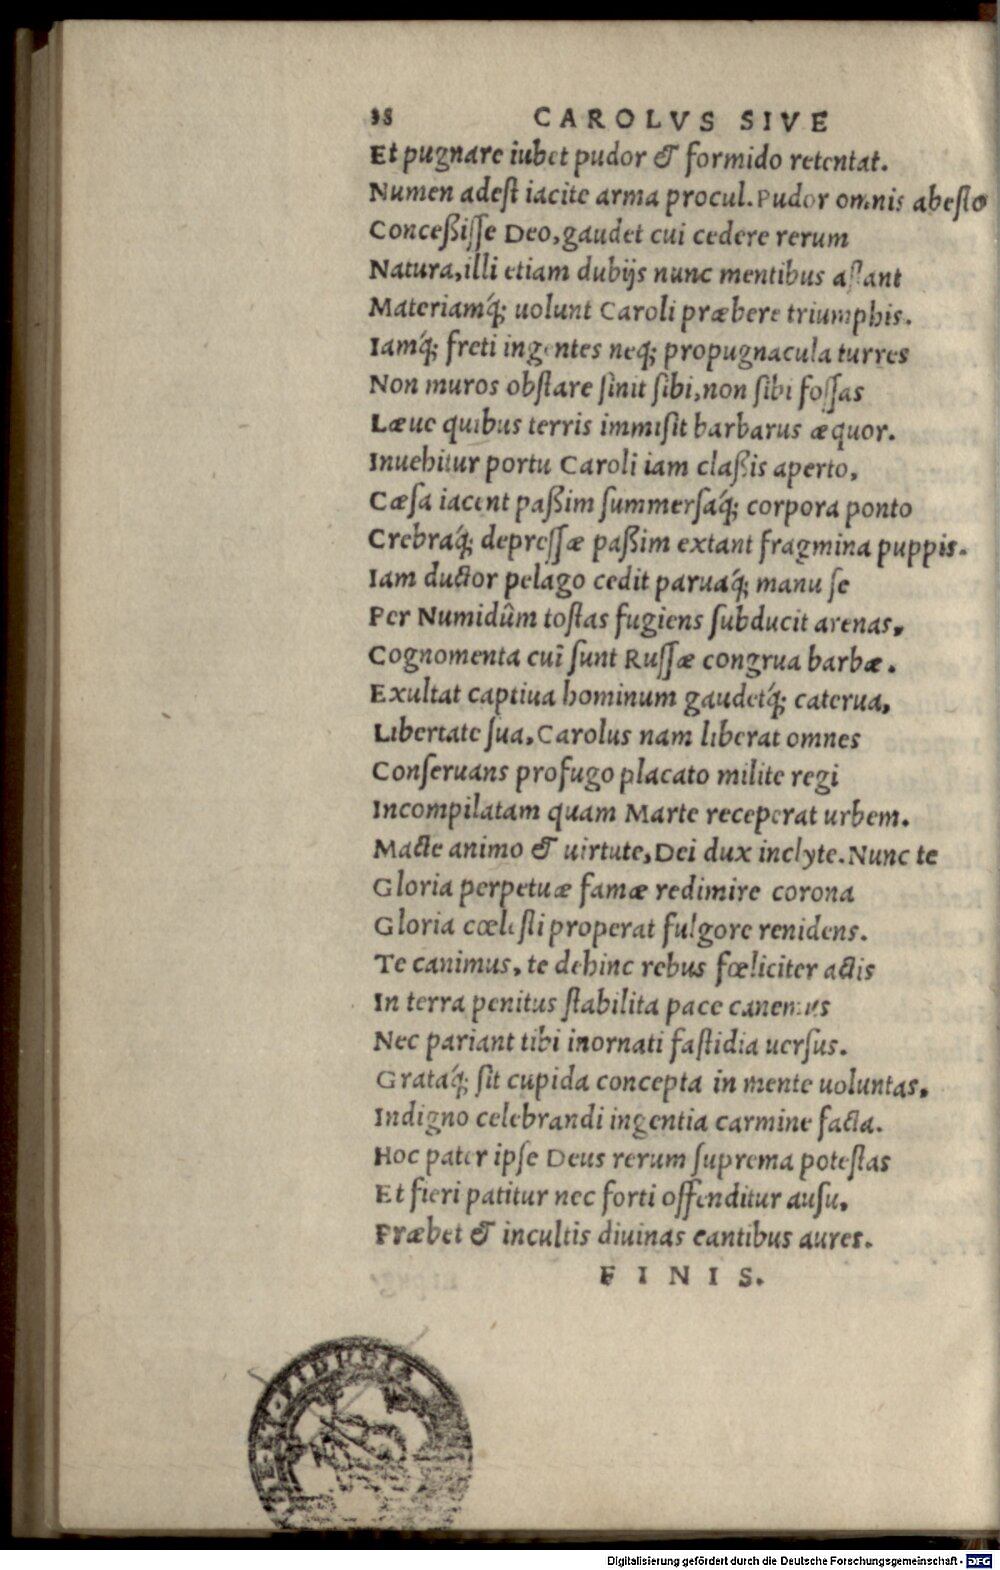 38 CAROLVS SIVE
Et pugnare iubet pudor & formido retentat.
Numen adeſt iacite arma procul. Pudor omnis abeſto
Conceßiſſe Deo, gaudet cui cedere rerum
Natura, illi etiam dubijs nunc mentibus aſtant
Materiamq́; uolunt Caroli præbere triumphis.
Iamq́; freti ingentes neq; propugnacula turres
Non muros obſtare ſinit ſibi, non ſibi foſſas
Læue quibus terris immiſit barbarus æquor.
Inuehitur portu Caroli iam claßis aperto,
Cæſa iacent paßim ſummerſaq́; corpora ponto
Crebraq́; depreſſæ paßim extant fragmina puppis.
Iam ductor pelago cedit paruaq́; manu ſe
Per Numidûm toſtas fugiens ſubducit arenas,
Cognomenta cuî ſunt Ruſſæ congrua barbæ.
Exultat captiua hominum gaudetq́; caterua,
Libertate ſua, Carolus nam liberat omnes
Conſeruans profugo placato milite regi
Incompilatam quam Marte receperat urbem.
Macte animo & uirtute, Dei dux inclyte. Nunc te
Gloria perpetuæ famæ redimire corona
Gloria cœleſti properat fulgore renidens.
Te canimus, te dehinc rebus fœliciter actis
In terra penitus ſtabilita pace canemus
Nec pariant tibi inornati faſtidia uerſus.
Grataq́; ſit cupida concepta in mente uoluntas,
Indigno celebrandi ingentia carmine facta.
Hoc pater ipſe Deus rerum ſuprema poteſtas
Et fieri patitur nec forti offenditur auſu,
Præbet & incultis diuinas cantibus aures.
FINIS.
ET FIDUCIA
Digitalisierung gefördert durch die Deutsche Forschungsgemeinschaft - DFG